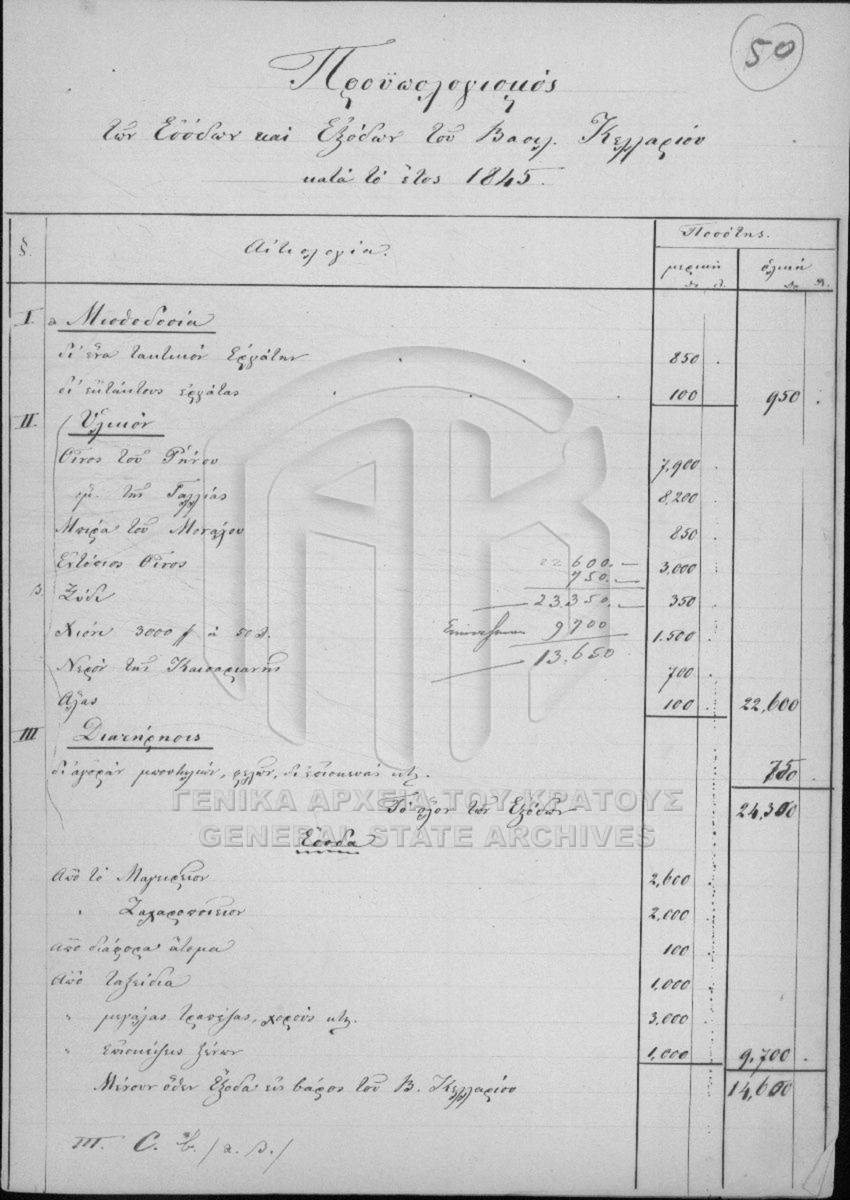 50
Προϋπολογισμός
τῶν Ἐσόδων καὶ Ἐξόδων τοῦ Βασιλ. Κελλαρίου
κατὰ τὸ ἔτος 1845.
§. Αἰτιολογία. Ποσότης.
μερικὴ ὁλικὴ
I. a Μισθοδοσία
δι' ἕνα τακτικὸν Ἐργάτην 850
δι' ἐκτάκτους ἐργάτας 100 950
II. Ὑλικόν
Οἶνος τοῦ Ῥήνου 7,900
τῆς Γαλλίας 8,200
Μπίρα τοῦ Μονάχου 850
Ἐντόπιος Οἶνος 22600.— 3,000
750.—
β. Ζύδι 23.350.— 350
Χιόνι 3000 à 50 λ. 9700 1.500
13.650
Νερὸν τῆς Καισαριανῆς 700
Ἅλας 100 22,600
III Διατήρησις
δι' ἀγορὰν μποτιλιῶν, φελλῶν, δι' ἐπισκευὰς κτλ. 750
Τὸ ὅλον τῶν Ἐξόδων 24,300
Ἔσοδα
Ἀπὸ τὸ Μαγειρεῖον 2,600
" Ζαχαροποιεῖον 2,000
Ἀπὸ διάφορα ἄτομα 100
Ἀπὸ ταξείδια 1,000
" μεγάλας τραπέζας, χοροὺς κτλ. 3,000
" ἐπισκέψεις ξένων 1,000 9,700
Μένουν ὅθεν Ἔξοδα εἰς βάρος τοῦ Β. Κελλαρίου 14,600
III. C. b. / a. β. /
ΓΕΝΙΚΑ ΑΡΧΕΙΑ ΤΟΥ ΚΡΑΤΟΥΣ
GENERAL STATE ARCHIVES